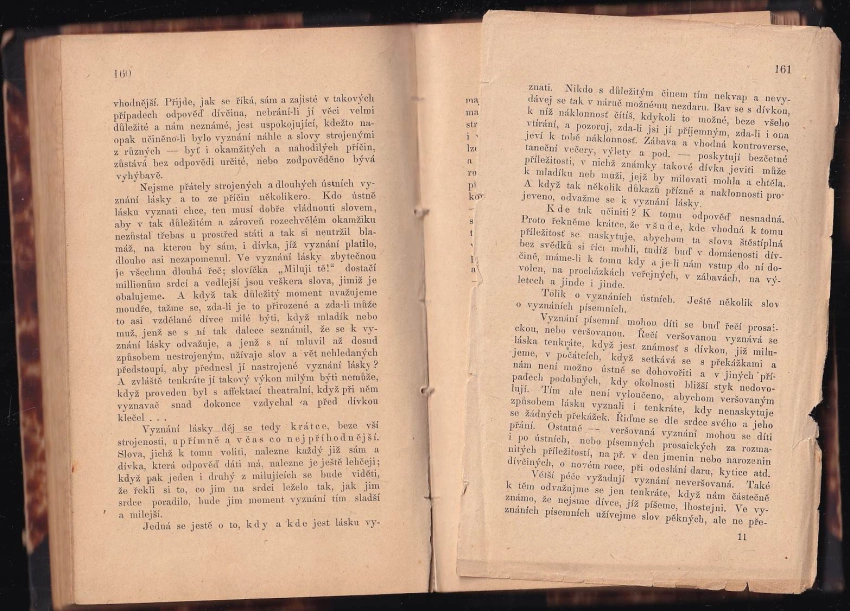 160
vhodnější. Přijde, jak se říká, sám a zajisté v takových
případech odpověď dívčina, nebrání-li jí věci velmi
důležité a nám neznámé, jest uspokojující, kdežto na-
opak učiněno-li bylo vyznání náhle a slovy strojenými
z různých — byť i okamžitých a nahodilých příčin,
zůstává bez odpovědi určité, nebo zodpověděno bývá
vyhýbavě.
Nejsme přátely strojených a dlouhých ústních vy-
znání lásky a to ze příčin několikero. Kdo ústně
lásku vyznati chce, ten musí dobře vládnouti slovem,
aby v tak důležitém a zároveň rozechvělém okamžiku
nezůstal třebas u prostřed státi a tak si neutržil bla-
máž, na kterou by sám, i dívka, jíž vyznání platilo,
dlouho asi nezapomenul. Ve vyznání lásky zbytečnou
je všechna dlouhá řeč; slovíčka „Miluji tě!“ dostačí
millionům srdcí a vedlejší jsou veškera slova, jimiž je
obalujeme. A když tak důležitý moment uvažujeme
moudře, tažme se, zda-li je to přirozené a zda-li může
to asi vzdělané dívce milé býti, když mladík nebo
muž, jenž se s ní tak dalece seznámil, že se k vy-
znání lásky odvažuje, a jenž s ní mluvil až dosud
způsobem nestrojeným, užívaje slov a vět nehledaných
předstoupí, aby přednesl jí nastrojené vyznání lásky?
A zvláště tenkráte jí takový výkon milým býti nemůže,
když proveden byl s affektací theatralní, když při něm
vyznavač snad dokonce vzdychal a před dívkou
klečel . . .
Vyznání lásky děj se tedy krátce, beze vší
strojenosti, upřímně a včas co nejpříhodnější.
Slova, jichž k tomu voliti, nalezne každý již sám a
dívka, která odpověď dáti má, nalezne je ještě lehčeji;
když pak jeden i druhý z milujících se bude viděti,
že řekli si to, co jim na srdci leželo tak, jak jim
srdce poradilo, bude jim moment vyznání tím sladší
a milejší.
Jedná se jestě o to, kdy a kde jest lásku vy-
161
znati. Nikdo s důležitým činem tím nekvap a nevy-
dávej se tak v náruč možnému nezdaru. Bav se s dívkou,
k níž náklonnost cítíš, kdykoli to možné, beze všeho
vtírání, a pozoruj, zda-li jsi jí příjemným, zda-li i ona
jeví k tobě náklonnosť. Zábava a vhodná kontroverse,
taneční večery, výlety a pod. — poskytují bezčetné
příležitosti, v nichž známky takové dívka jeviti může
k mladíku neb muži, jejž by milovati mohla a chtěla.
A když tak několik důkazů přízně a náklonnosti pro-
jeveno, odvažme se k vyznání lásky.
Kde tak učiniti? K tomu odpověď nesnadná.
Proto řekněme krátce, že všude, kde vhodná k tomu
příležitost se naskytuje, abychom ta slova štěstíplná
bez svědků si říci mohli, tudíž buď v domácnosti dív-
čině, máme-li k tomu kdy a je-li nám vstup do ní do-
volen, na procházkách veřejných, v zábavách, na vý-
letech a jinde i jinde.
Tolik o vyznáních ústních. Ještě několik slov
o vyznáních písemních.
Vyznání písemní mohou díti se buď řečí prosai-
ckou, nebo veršovanou. Řečí veršovanou vyznává se
láska tenkráte, když jest známosť s dívkou, již milu-
jeme, v počátcích, když setkává se s překážkami a
nám není možno ústně se dohovořiti a v jiných pří-
padech podobných, kdy okolnosti bližší styk nedovo-
lují. Tím ale není vyloučeno, abychom veršovaným
způsobem lásku vyznali i tenkráte, kdy nenaskytuje
se žádných překážek. Řiďme se dle srdce svého a jeho
přání. Ostatně — veršovaná vyznání mohou se díti
i po ústních, nebo písemných prosaických za rozma-
nitých příležitostí, na př. v den jmenin nebo narozenin
dívčiných, o novém roce, při odeslání daru, kytice atd.
Větší péče vyžadují vyznání neveršovaná. Také
k těm odvažujme se jen tenkráte, když nám částečně
známo, že nejsme dívce, jíž píšeme, lhostejni. Ve vy-
znáních písemních užívejme slov pěkných, ale ne pře-
11